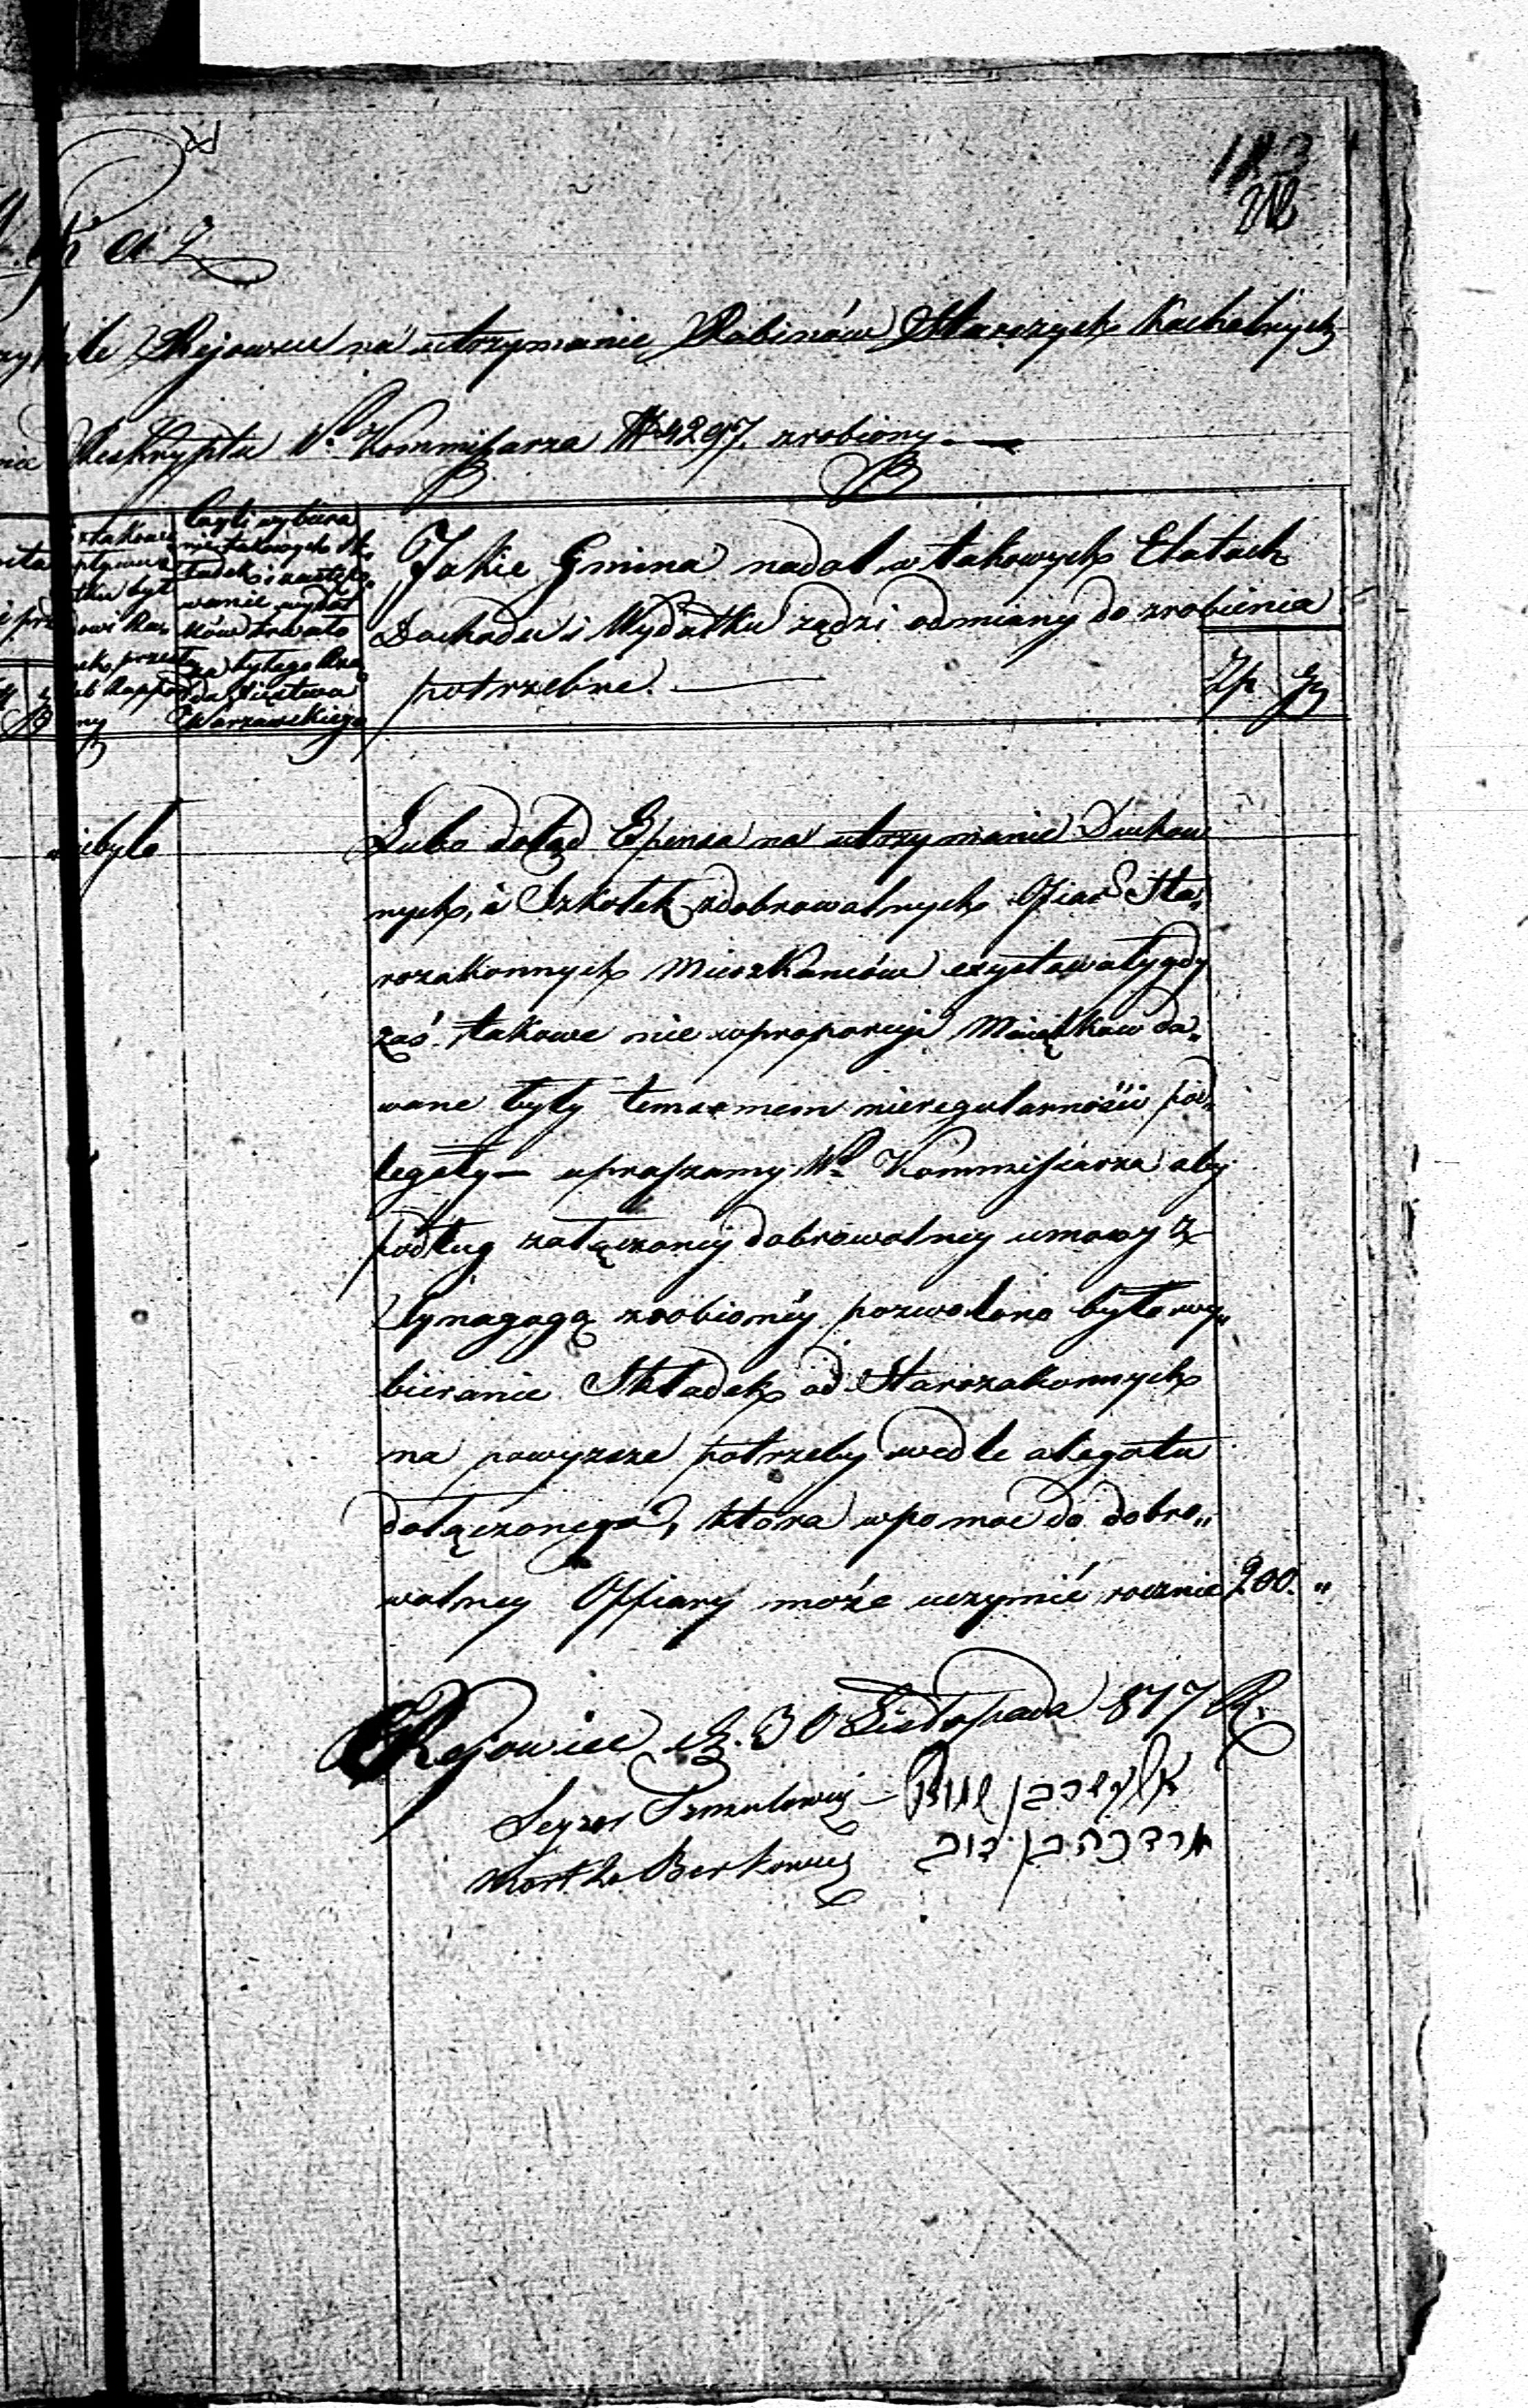 183
kaz
Rejowcu na utrzymanie Rabinów Starszych Kachalnych
Reskryptu W. Kommissarza N 4297. zrobiony.
Czyli wybiera
nie takowych Skł
adek i zastęp
wanie wydat
ków trwało
za byłego Rzą
du Xięstwa
Warszawskiego
Jakie Gmina nadal w takowych Etatach
Dochodu i Wydatku sądzi odmiany do zrobienia
potrzebne.
Zp gr
niebyło
Lubo dotąd Expensa na utrzymanie Duchow
nych, i Szkołek zdobrowolnych Ofiar Sta„
rozakonnych Mieszkańców exystowały gdy
zaś takowe nie wproporcyi Maiątkow da„
wane były temsamem nieregularności pod„
legały — upraszamy W. Kommissarza aby
podług załączoney dobrowolney umowy z
Synagogą zrobioney pozwolono było wy„
bieranie Składek od Starozakonnych
na powyzsze potrzeby wedle alegatu
dołączonego, która wpomoc do dobro„
wolney Offiary może uczynić rocznie 200. „
Rejowiec d. 30 Listopada 817 R.
Leyzer Szmulowicz — אליעזר בן שמואל
Mortko Berkowicz מרדכה בן דוב